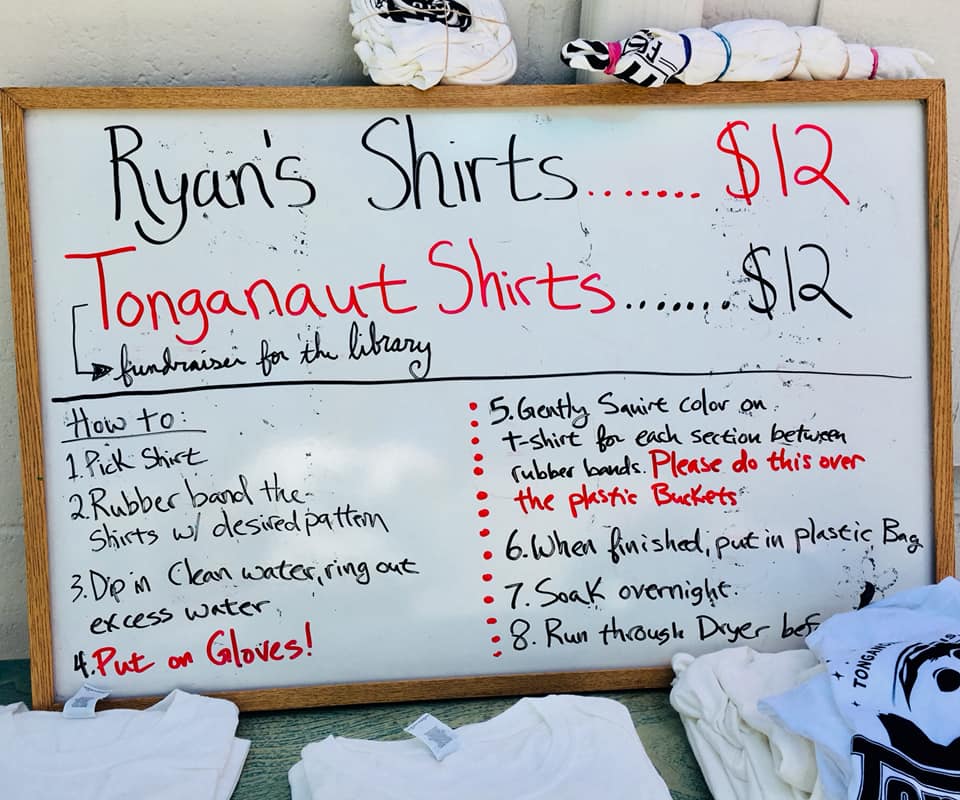 Ryan's Shirts....... $12
Tonganaut Shirts....... $12
fundraiser for the library
How to:
1. Pick Shirt
2. Rubber band the
Shirts w/ desired pattern
3. Dip in Clean water, ring out
excess water
4. Put on Gloves!
5. Gently Squirt color on
t-shirt for each section between
rubber bands. Please do this over
the plastic Buckets
6. When finished, put in plastic Bag
7. Soak overnight.
8. Run through Dryer bef
TONGAN